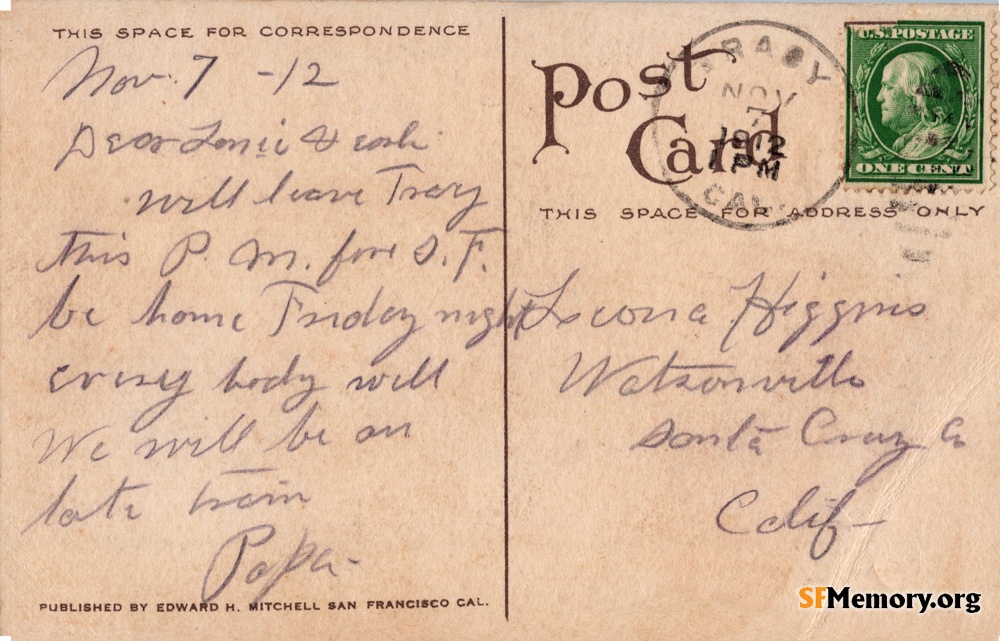 THIS SPACE FOR CORRESPONDENCE
Nov. 7 -12
Dear &
will leave Tracy
this P. M. for S. F.
be home Friday night
every body well
We will be on
late train
Papa-
PUBLISHED BY EDWARD H. MITCHELL SAN FRANCISCO CAL.
Post Card
TRACY
NOV
7
1912
1 PM
CAL.
U.S. POSTAGE
ONE CENT
THIS SPACE FOR ADDRESS ONLY
Leona Higgins
Watsonville
Santa Cruz Co
Calif-
SFMemory.org